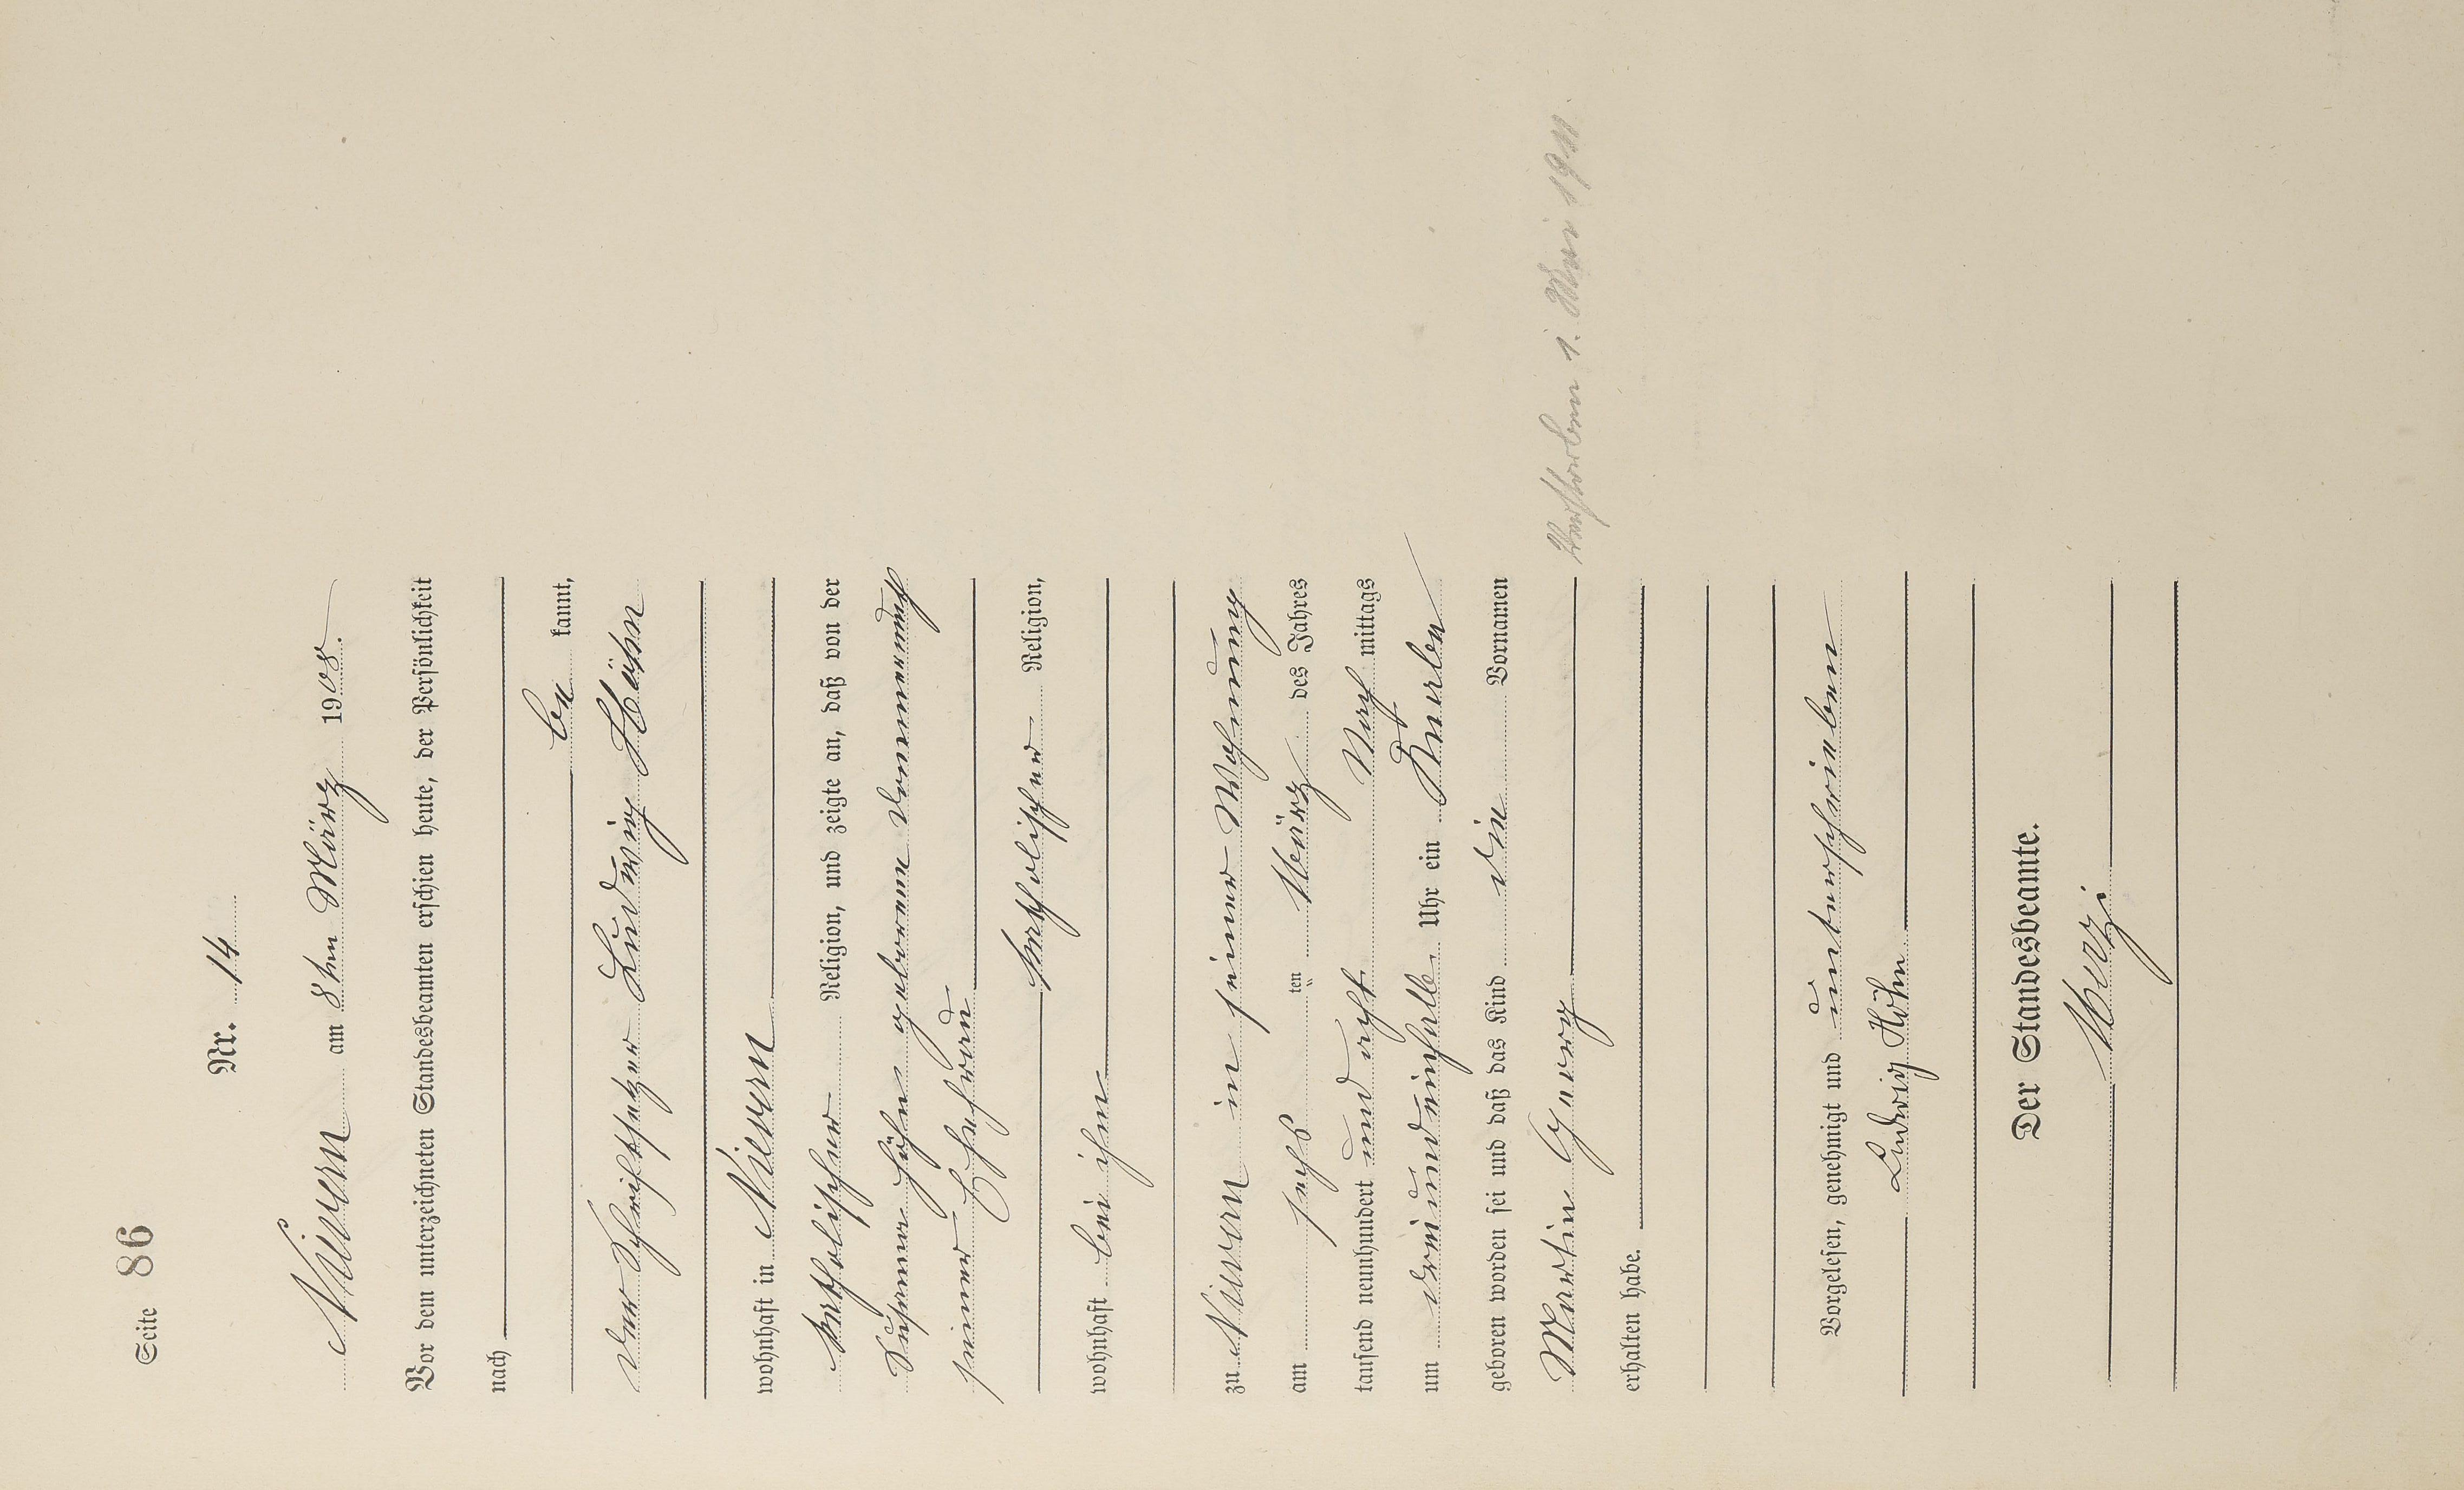 Seite 86
Nr. 14
Nievern am 8ten März 1908.
Vor dem unterzeichneten Standesbeamten erschien heute, der Persönlichkeit
nach
be kannt,
der Schriftsetzer Ludwig Höhn
wohnhaft in Nievern
katholischer Religion, und zeigte an, daß von der
Susanna Höhn geborene
seiner Ehefrau
katholischer Religion,
wohnhaft bei ihm
zu Nievern in seiner Wohnung
am sechs ten März des Jahres
tausend neunhundert und acht Nach mittags
um dreiundeinhalb Uhr ein Knabe
geboren worden sei und daß das Kind die Vornamen
Martin Georg
erhalten habe.
Verstorben 1. Mai 1911.
Vorgelesen, genehmigt und unterschrieben
Ludwig Höhn
Der Standesbeamte.